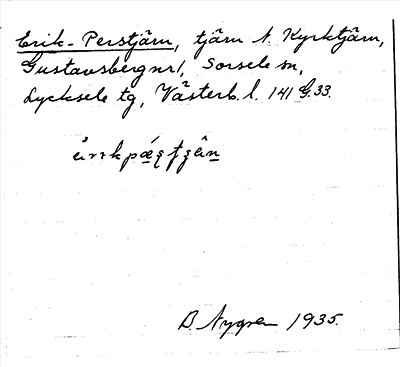 Erik-Perstjärn, tjärn N. Kyrktjärn,
Gustavsberg nr 1, Sorsele sn,
Lycksele tg, Västerb. l. 141 G. 33.
B. Nygren 1935.